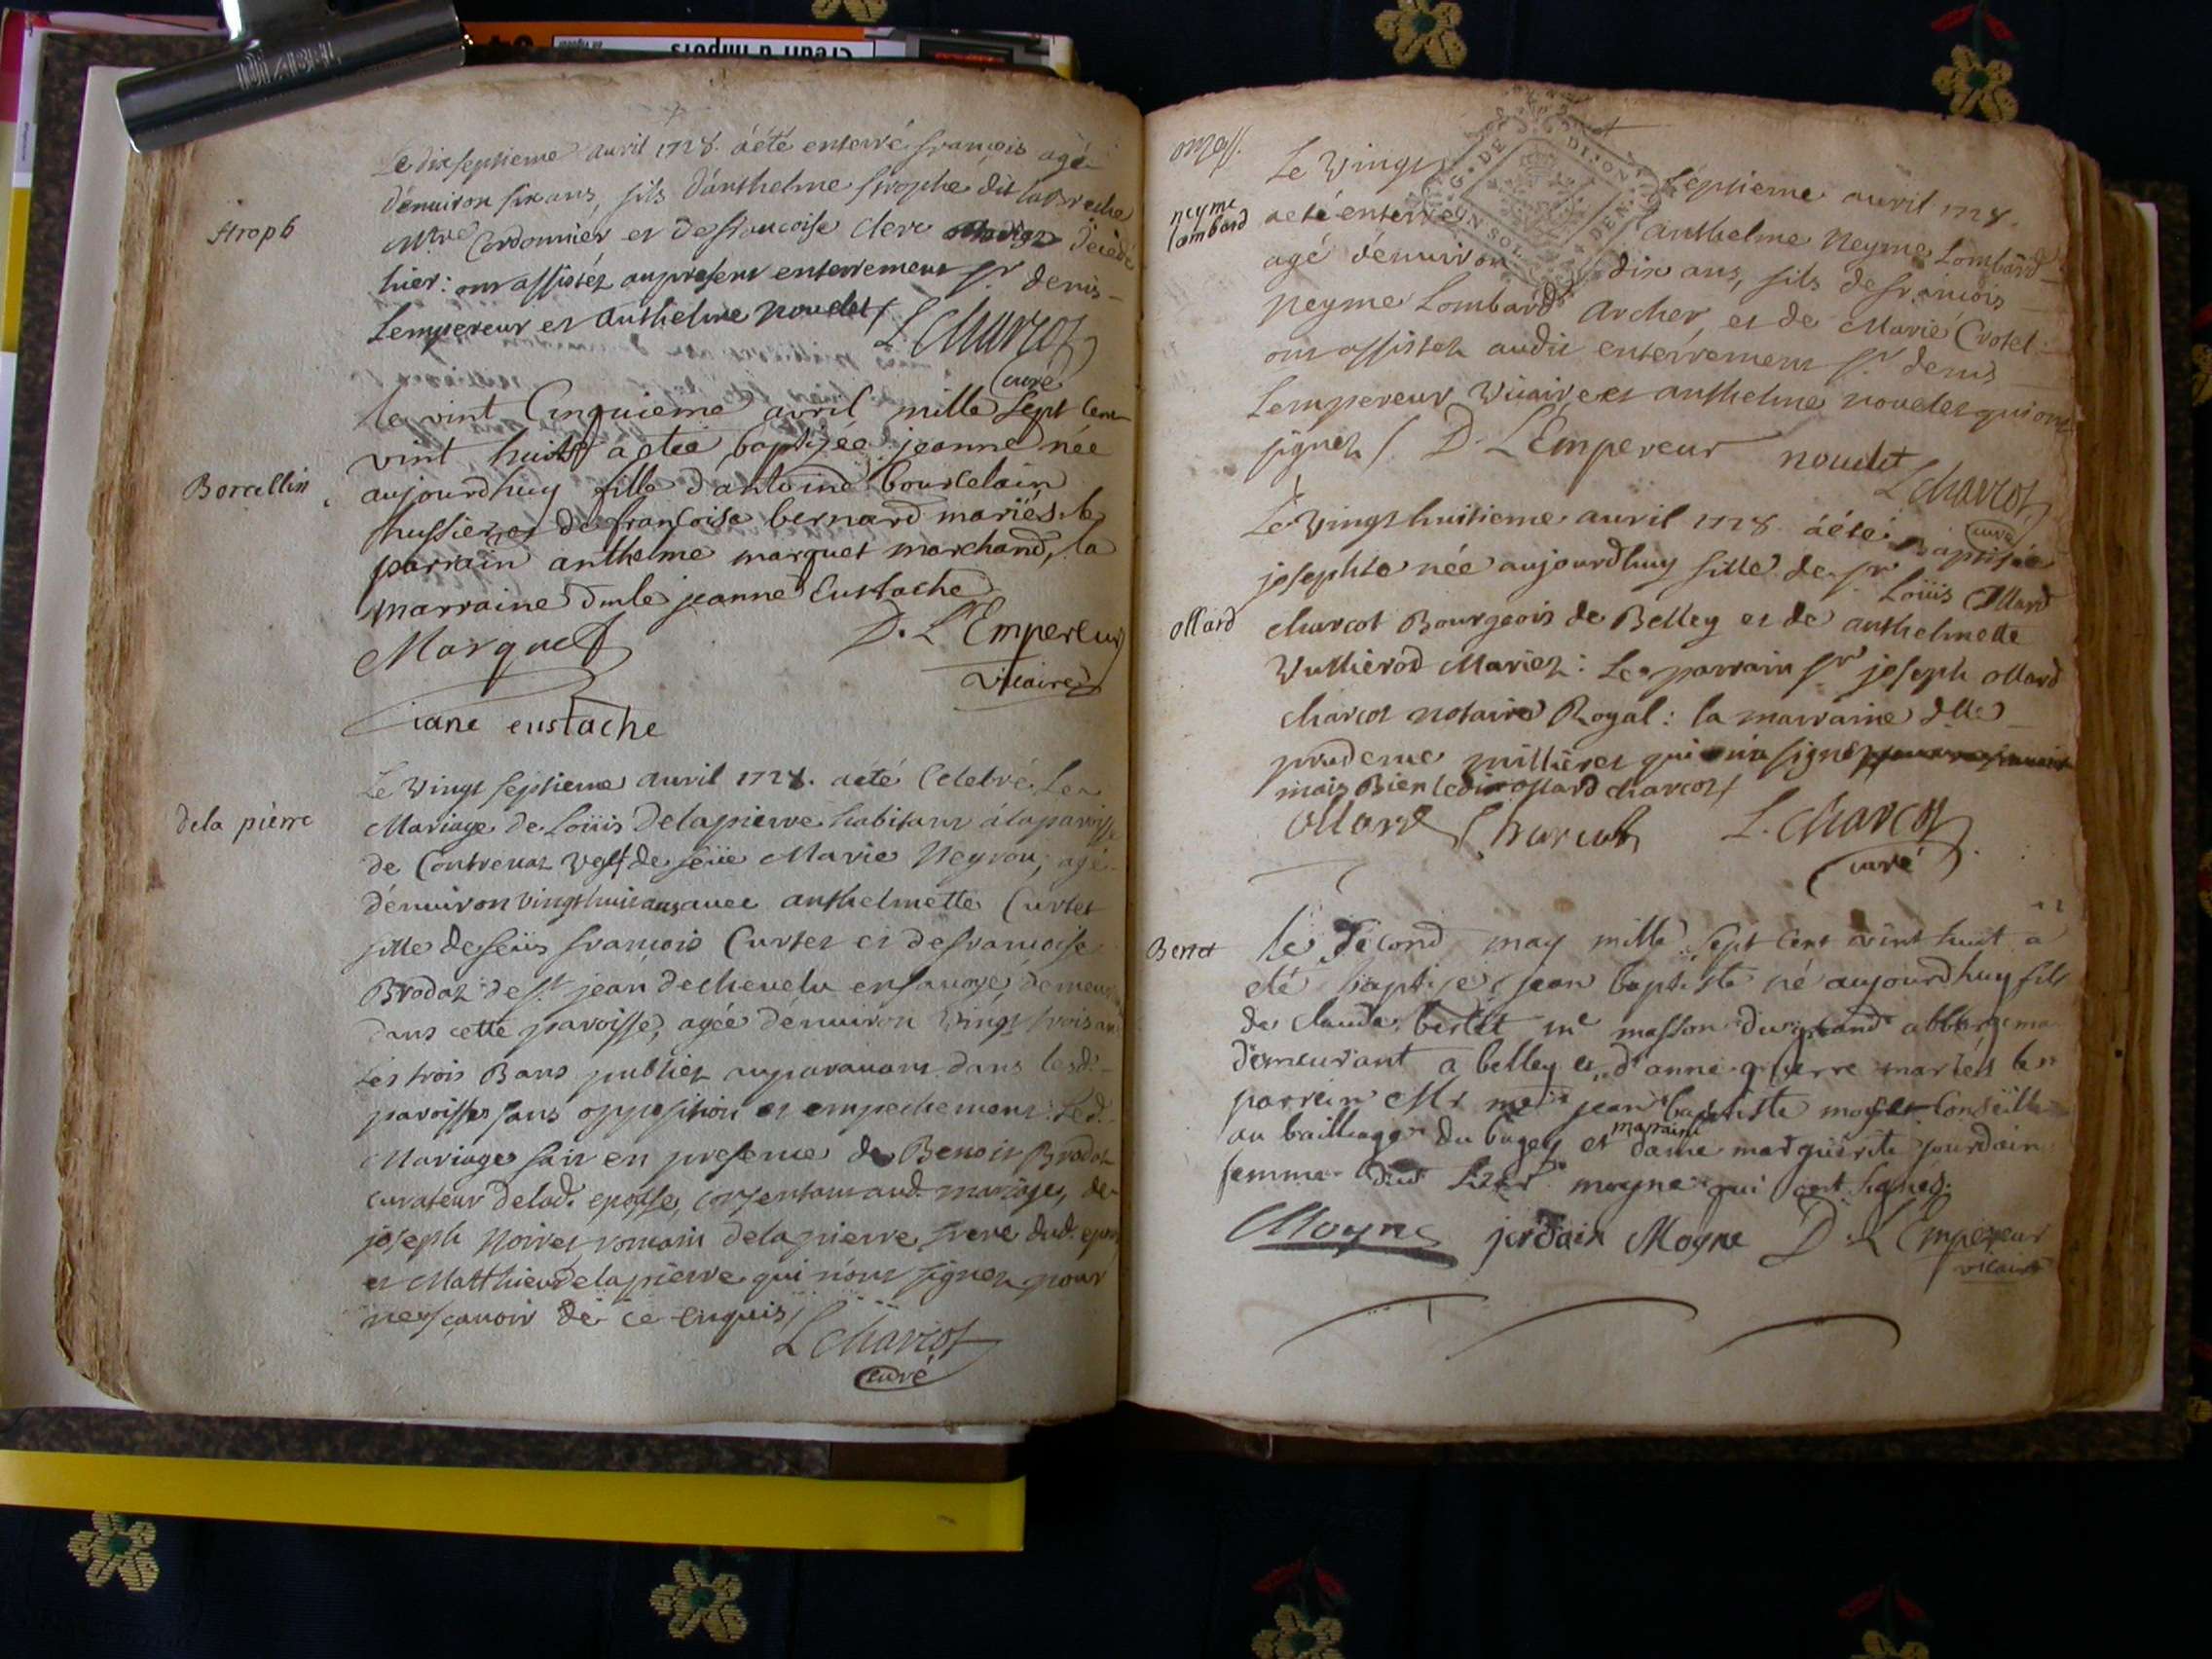 DIABEL
Crédit d'impôts
Le dixseptieme auril 1728. áété enterré françois agé
d'enuiron six ans, fils d'anthelme strophe dit labreche
strop6
Mtre Cordonnier et de francoise clerc décedé
hier: ont assistéz au present enterrement sr denis
Lempereur et Anthelme noudet /.
L charcot
curé
le vint Cinquieme avril mille sept cent
vint huit a etée baptizée jeanne née
Borcellin
aujourdhuy fille d'antoine bourcelain
hussier et de françoise bernard mariés. le
parrain anthelme marquet marchand, la
marraine dmle jeanne Eustache
Marquet
D. L'Empereur
vicaire
iane eustache
Le vingt septieme auril 1728. aété Celebré Le
dela pierre
Mariage de Loüis Delapierre habitant álaparoisse
de Contreuoz vefs de feüe Marie Neyron, agé
d'enuiron vingthuit ans auec anthelmette Curtet
fille defeüs françois Curtet et defrancoise
Brodaz de st jean decheuelu ensauoye,
dans cette paroisse, agée d'enuiron vingt trois ans
Les trois Bans publiez auparauant dans lesd.
paroisses sans opposition et empechement: Led.
Mariage fait en presence de Benoit Brodaz
curateur de lad. epouse, consentant aud. mariage, de
joseph Noiret romain delapierre frere dud. epoux
et Matthieu delapierre qui n'ont signez pour
nesçauoir de ce enquis /.
L charcot
curé
G. DE DIJON
Le Vingt septieme auril 1728.
neyme
lombard
aeté enterré anthelme Neyme Lombard
agé d'enuiron dix ans, fils de françois
Neyme Lombard Archer, et de Marie Crotet:
ont assistez audit enterrement sr denis
Lempereur vicaire et anthelme noudet qui ont
signez /.
D. L'Empereur
noudet
L charcot
curé
Le Vingt huitieme auril 1728. áété Baptisée
josephte née aujourdhuy fille de sr Loüis Ollard
ollard
charcot Bourgeois de Belley et de anthelmette
Vulliérod Mariez: Le parrain sr joseph ollard
charcot notaire Royal: la marraine dlle
prudence millieret qui n'a signé
mais Bien ledit ollard charcot /.
ollard Charcot
L. charcot
curé
Berret
le second may mille sept cent vint huit a
eté baptisé jean baptiste né aujourdhuy fils
de claude bertet me masson du grand abbergema
demeurant a belley et d'anne guerre mariés le
parrein Mr me jean baptiste moyne Conseiller
au bailliage du bugey et marraine dame marguerite jourdain
femme dud sieur moyne qui ont signés.
Moyne
jordain Moyne
D. L'Empereur
vicaire